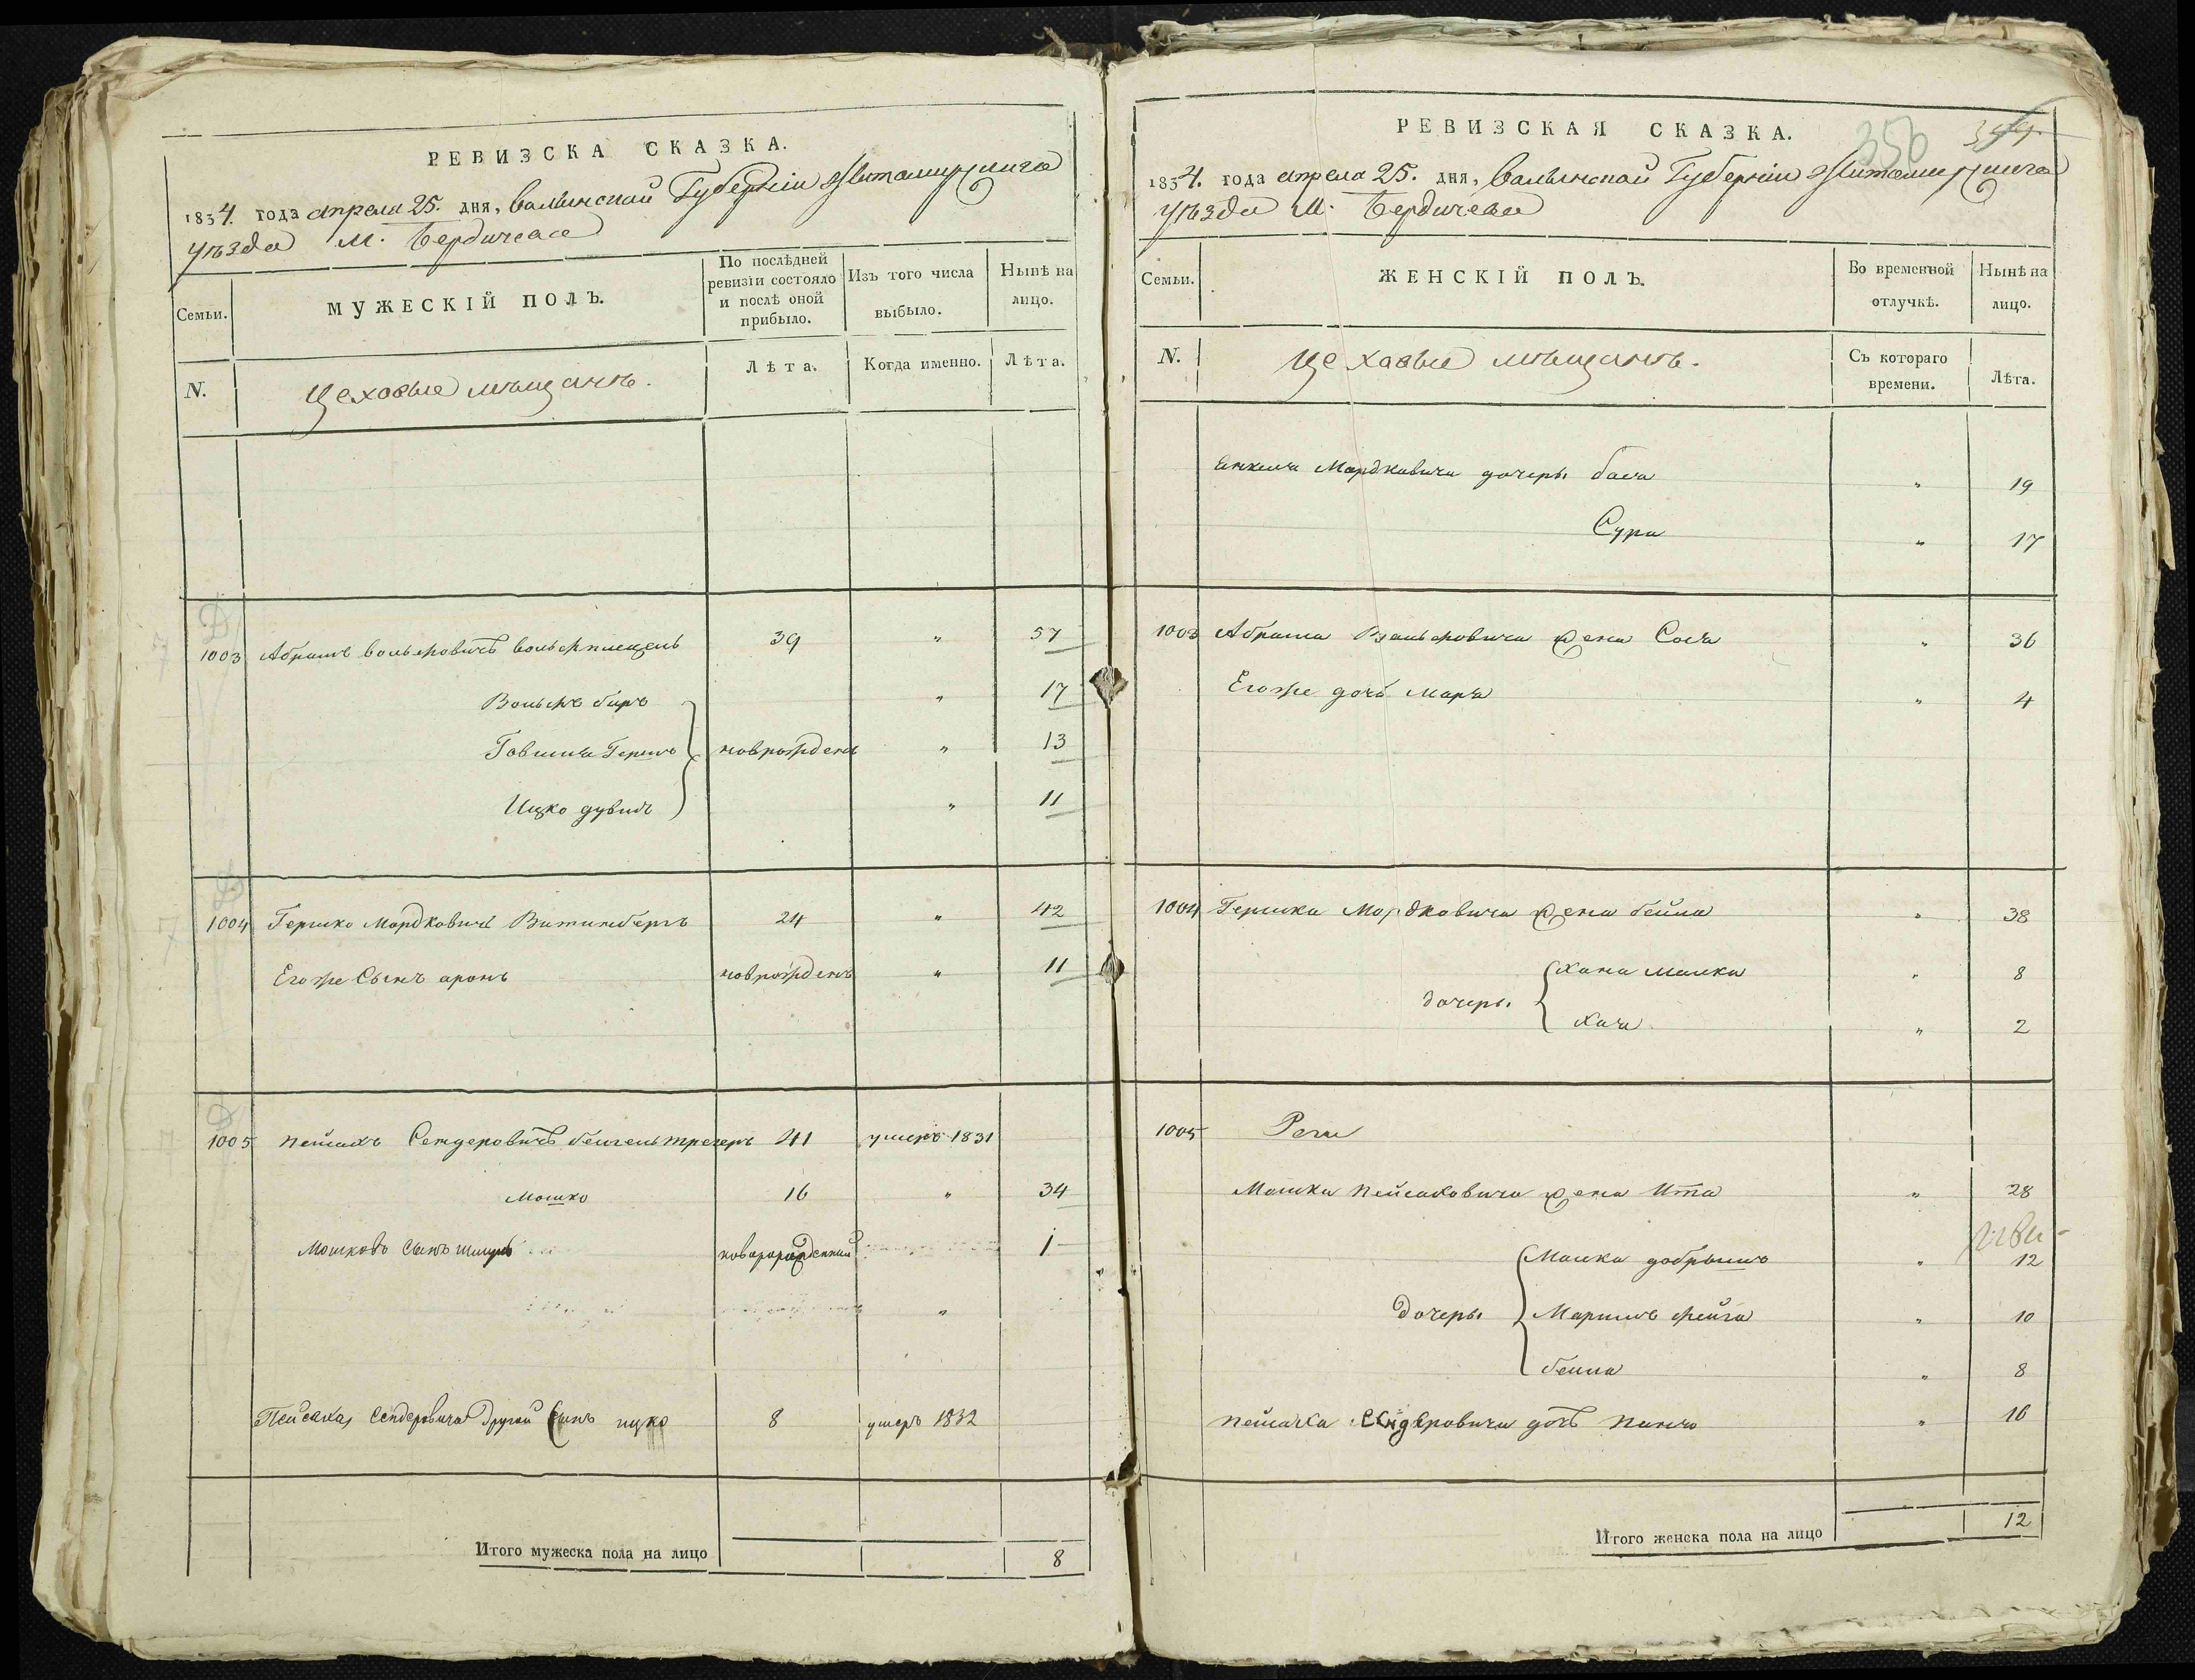 РЕВИЗСКА СКАЗКА.
1834. года апреля 25. дня, Волынской Губерніи Житомирскаго
уѣзда М. Бердичева
Семьи.
МУЖЕСКІЙ ПОЛЪ.
По послѣдней ревизіи состояло и послѣ оной прибыло.
Изъ того числа выбыло.
Нынѣ на лицо.
N.
Цеховые мѣщанъ.
Лѣта.
Когда именно.
Лѣта.
1003 Абрамъ Вольковичъ 39 " 57
" 17
Гершъ новрожденъ " 13
Ицко дувидъ " 11
1004 Гершко Мордковичъ Витинбергъ 24 " 42
Егоже Сынъ аронъ новрожденъ " 11
1005 пейсахъ Сендеровичъ 41 умеръ 1831
Мошко 16 " 34
Мошковъ сынъ шмуль новорожденний 1
"
Пейсаха Сендеровича другой Сынъ ицко 8 умеръ 1832
Итого мужеска пола на лицо 8
РЕВИЗСКАЯ СКАЗКА.
350
1834. года апреля 25. дня, Волынской Губерніи Житомирскаго
уѣзда М. Бердичева
Семьи.
ЖЕНСКІЙ ПОЛЪ.
Во временной отлучкѣ.
Нынѣ на лицо.
N.
Цеховые мѣщанъ.
Съ котораго времени.
Лѣта.
Мордковича дочеры бася " 19
Сура " 17
1003 Абрама жена Сося " 36
Егоже дочь " 4
1004 Гершка Мордковича жена бейла " 38
дочеры Хана Малка " 8
Хая " 2
1005
Мошка Пейсаховича жена Ита " 28
Малка добрышъ " 12
дочеры Маріемъ фейга " 10
бейла " 8
пейсаха Сендеровича дочь " 16
Итого женска пола на лицо 12